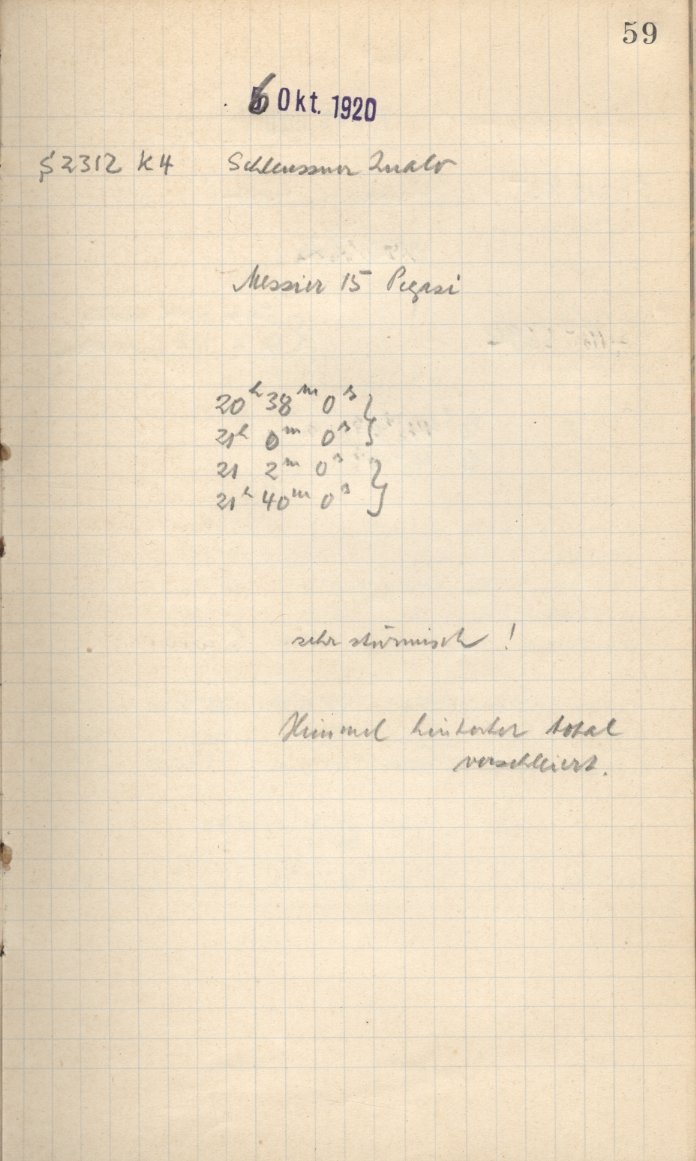 59
6 Okt. 1920
S 2312 K4 Schleussner
Messier 15 Pegasi
20ʰ 38ᵐ 0ˢ }
21ʰ 0ᵐ 0ˢ }
21 2ᵐ 0ˢ }
21ʰ 40ᵐ 0ˢ }
sehr stürmisch !
Himmel total
verschleiert.